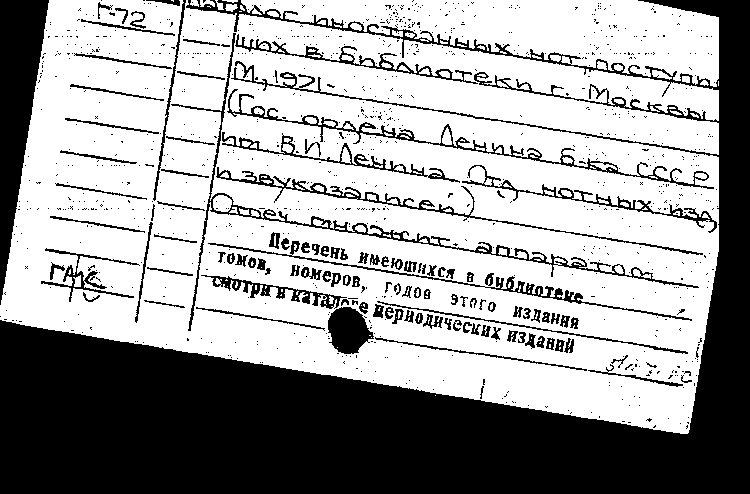 Г-72
каталог иностранных нот, поступив
ших в библиотеки г. Москвы
М., 1971-
(Гос. ордена Ленина б-ка СССР
им. В.И. Ленина. Отд нотных изд
и звукозаписей)
Отпеч. множит. аппаратом
Перечень имеющихся в библиотеке
томов, номеров, годов этого издания
смотри в каталоге периодических изданий